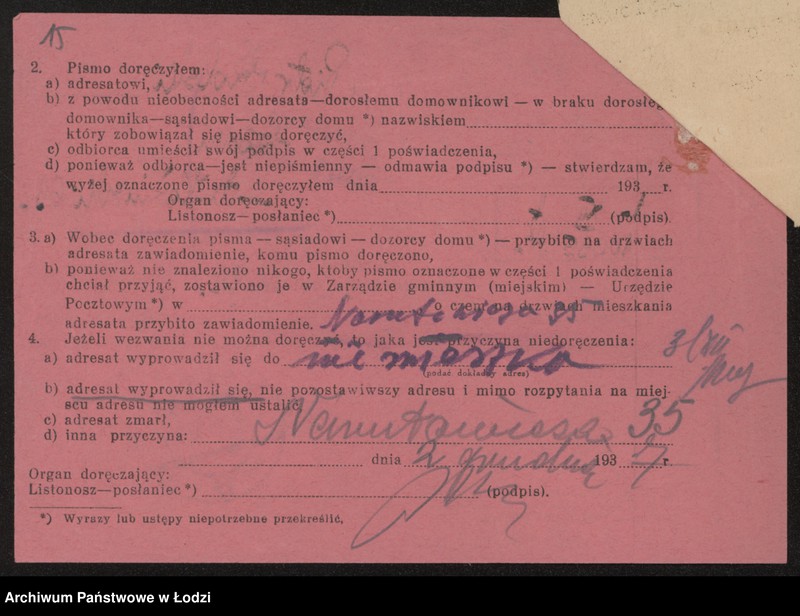 15
2. Pismo doręczyłem:
a) adresatowi,
b) z powodu nieobecności adresata—dorosłemu domownikowi — w braku dorosłeg
domownika—sąsiadowi—dozorcy domu *) nazwiskiem
który zobowiązał się pismo doręczyć,
c) odbiorca umieścił swój podpis w części 1 poświadczenia,
d) ponieważ odbiorca—jest niepiśmienny — odmawia podpisu *) — stwierdzam, że
wyżej oznaczone pismo doręczyłem dnia 193 r.
Organ doręczający:
Listonosz—posłaniec *) (podpis).
3. a) Wobec doręczenia pisma — sąsiadowi — dozorcy domu *) — przybito na drzwiach
adresata zawiadomienie, komu pismo doręczono,
b) ponieważ nie znaleziono nikogo, ktoby pismo oznaczone w części 1 poświadczenia
chciał przyjąć, zostawiono je w Zarządzie gminnym (miejskim) — Urzędzie
Pocztowym *) w o czem na drzwiach mieszkania
adresata przybito zawiadomienie. Narutowicza 35
4. Jeżeli wezwania nie można doręczyć, to jaka jest przyczyna niedoręczenia:
a) adresat wyprowadził się do nie mieszka
(podać dokładny adres)
b) adresat wyprowadził się, nie pozostawiwszy adresu i mimo rozpytania na miej-
scu adresu nie mogłem ustalić,
c) adresat zmarł,
d) inna przyczyna: Narutowicza 35
dnia 2 grudnia 1934 r.
Organ doręczający:
Listonosz—posłaniec *) (podpis).
*) Wyrazy lub ustępy niepotrzebne przekreślić.
Archiwum Państwowe w Łodzi